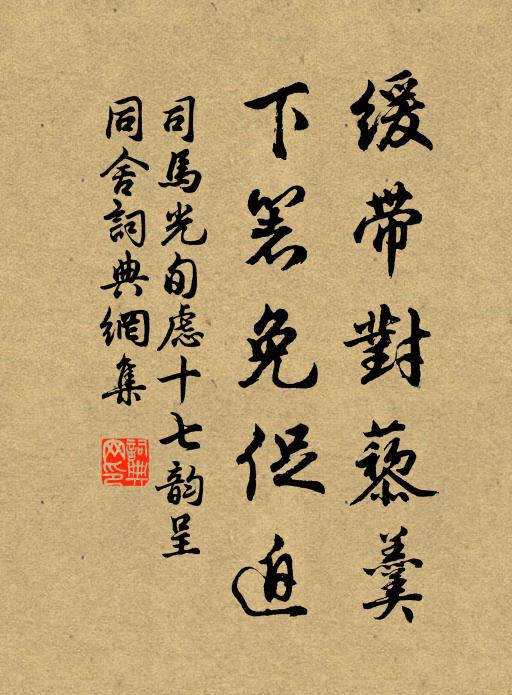 緩帶對藜羹
下箸免促迫
司馬光旬慮十七韵呈
同舍詞典網集
詞典網印